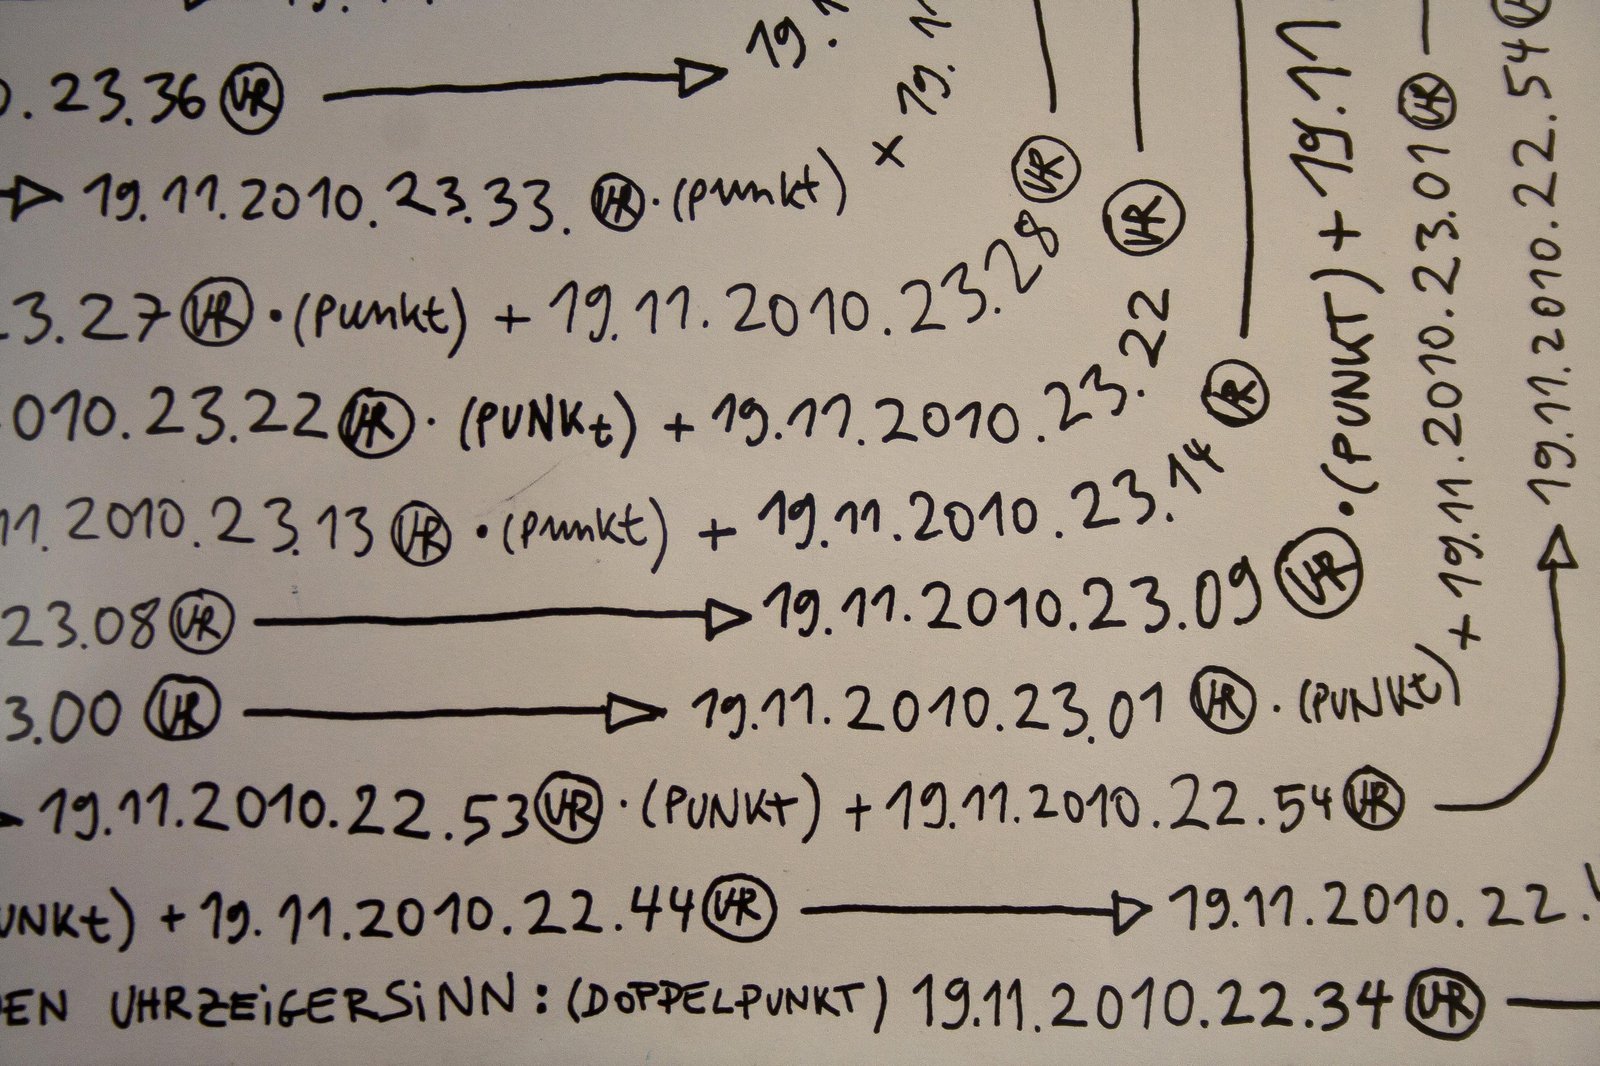 23.36 UHR → 19.
→ 19.11.2010.23.33. UHR · (punkt) × 19.11
3.27 UHR · (Punkt) + 19.11.2010.23.28 UHR
010.23.22 UHR · (PUNKt) + 19.11.2010.23.22 UHR
11.2010.23.13 UHR · (punkt) + 19.11.2010.23.14 UHR
23.08 UHR → 19.11.2010.23.09 UHR · (PUNKT) + 19.11
3.00 UHR → 19.11.2010.23.01 UHR · (PUNKt) + 19.11.2010.23.01 UHR
19.11.2010.22.53 UHR · (PUNKt) + 19.11.2010.22.54 UHR → 19.11.2010.22.54 UHR
UNKt) + 19.11.2010.22.44 UHR → 19.11.2010.22.
EN UHRZEiGERSiNN : (DOPPELPUNKT) 19.11.2010.22.34 UHR